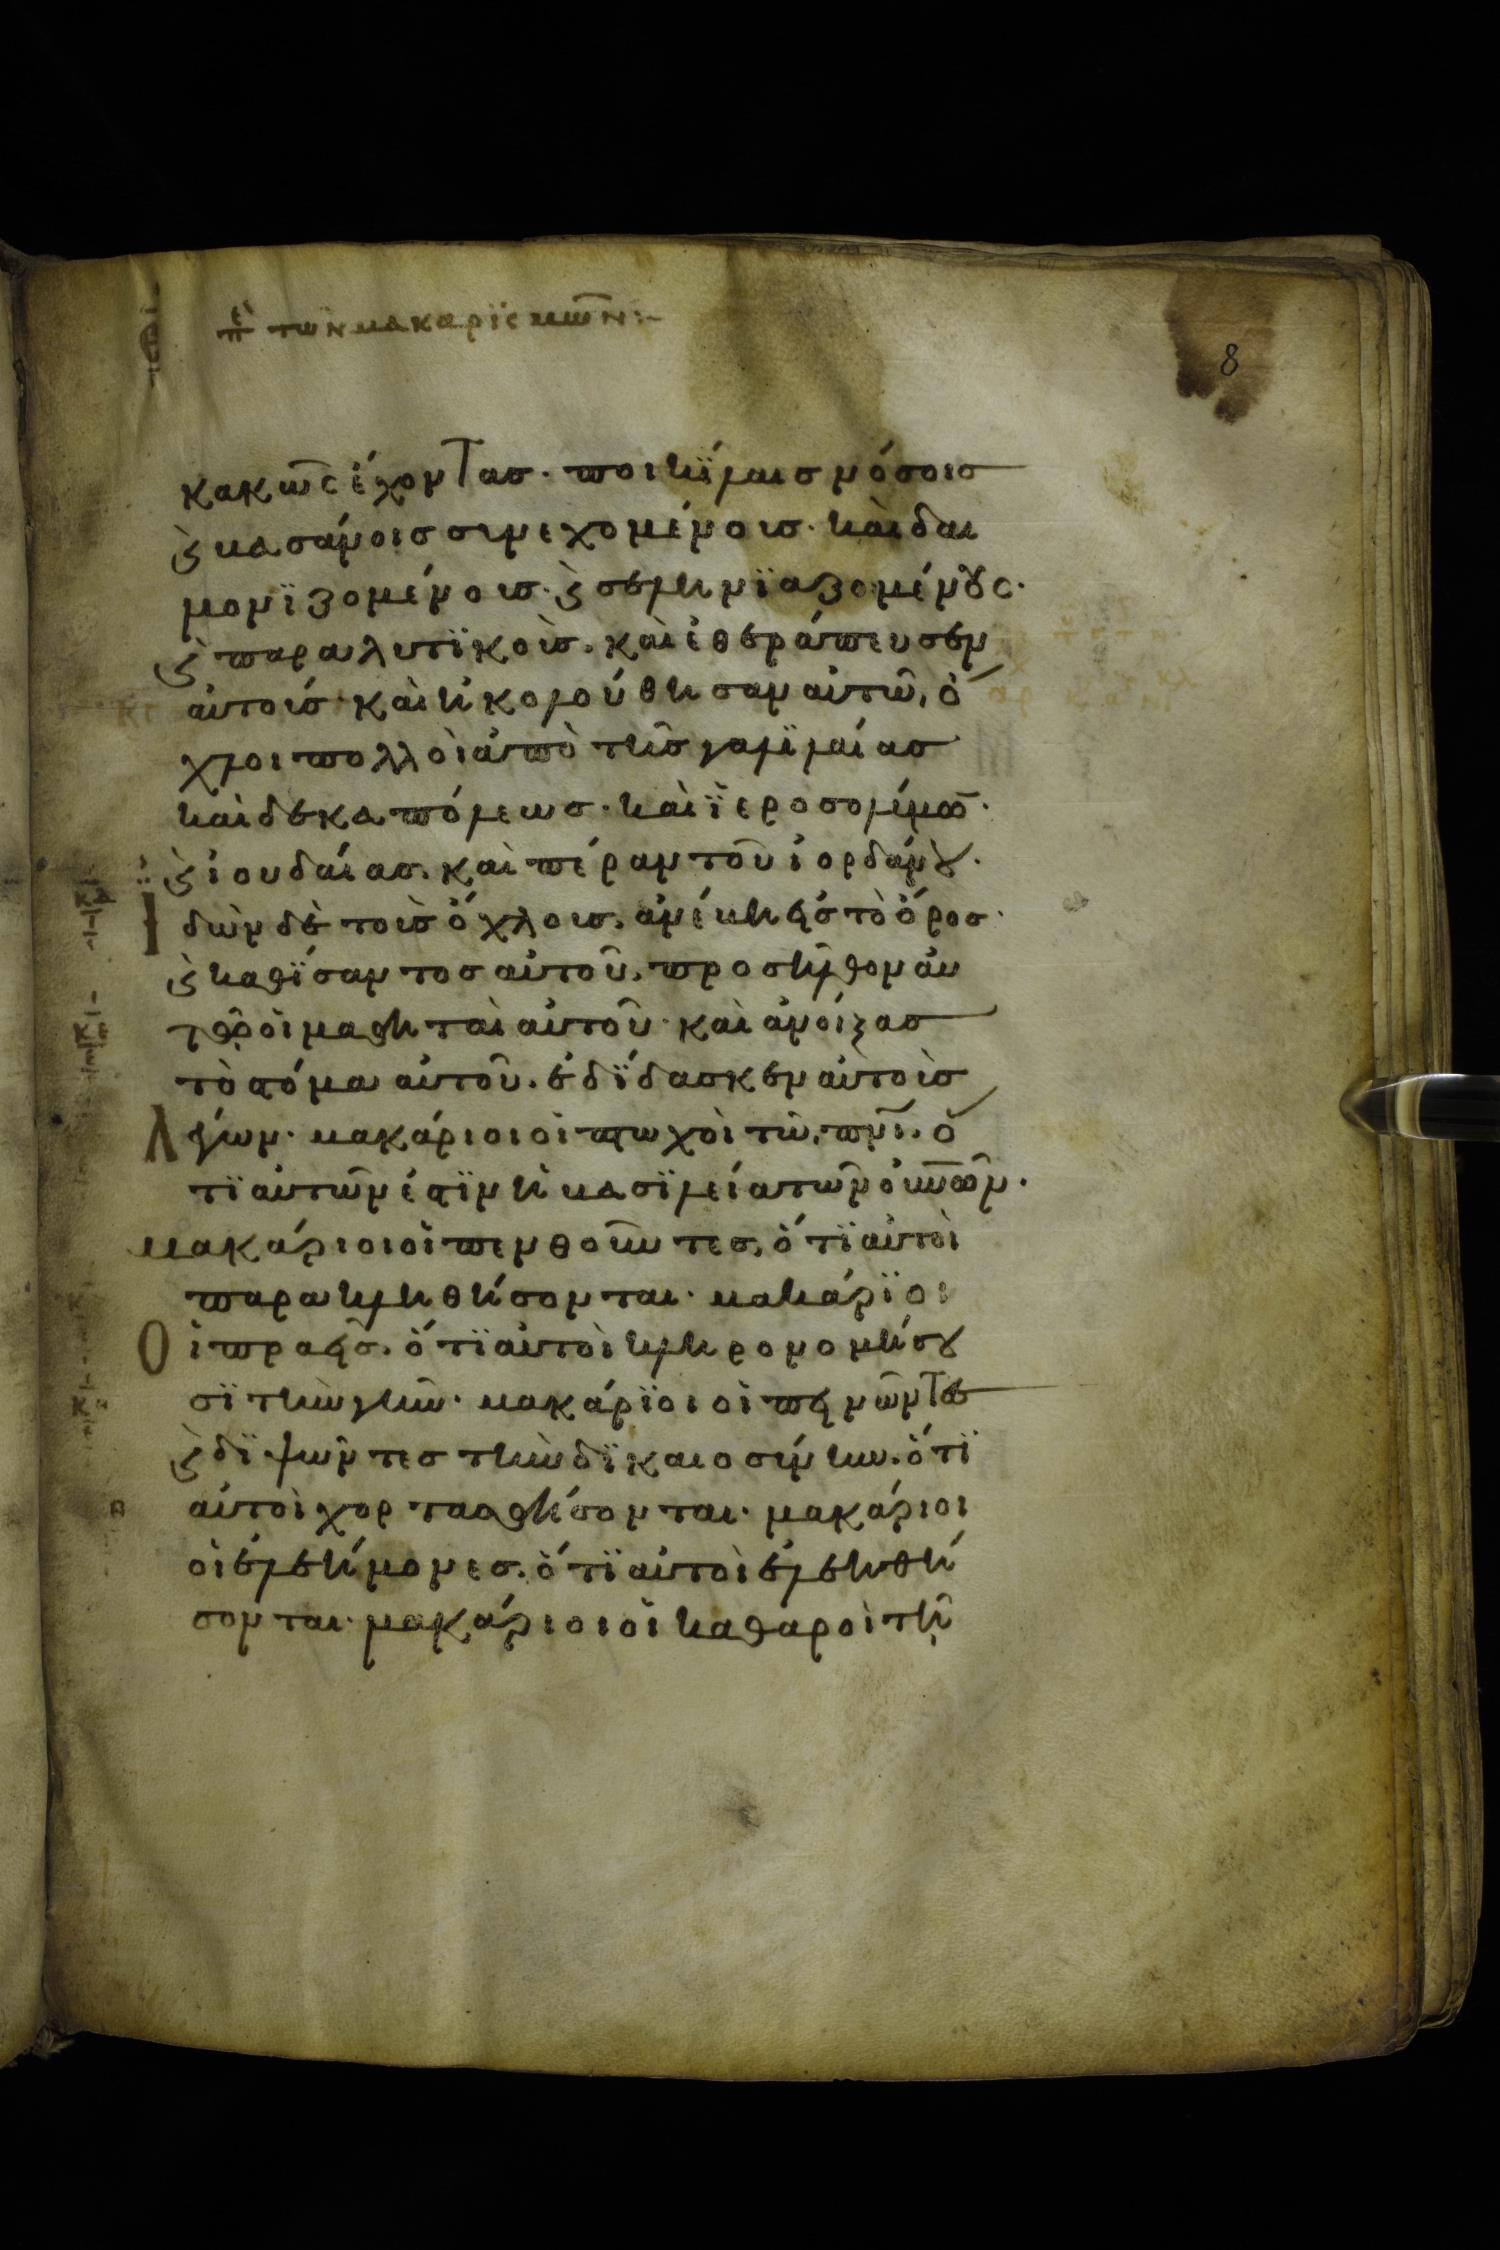 ε̅ π̅ τῶν μακαρϊσμῶν:-
8
κακῶς ἔχοντας· ποικίλαις νόσοις
ϗ βασάνοις συνεχομένοις· καὶ δαι
μονϊζομένοις· ϗ σεληνϊαζομένους·
ϗ παραλυτϊκοὶς· καὶ ἐθεράπευσεν
αὐτοίς· καὶ ἠκολούθησαν αὐτῶ, ὄ
χλοι πολλοὶ ἀπὸ τῆς γαλϊλαίας
καὶ δεκαπόλεως· καὶ ϊεροσολύμων·
ϗ ἰουδαίας· καὶ πέραν τοῦ ἰορδάνου·
Ιδὼν δὲ τοὶς ὄχλοις, ἀνέβη εἰς τὸ ὄρος·
ϗ καθΐσαντος αὐτοῦ, προσῆλθον αὐ
τῶ οἱ μαθηταὶ αὐτοῦ· καὶ ἀνοίξας
τὸ στόμα αὐτοῦ. ἐδΐδασκεν αὐτοὶς
Λέγων· μακάριοι οἱ πτωχοὶ τῶ πνι. ὅ
τϊ αὐτῶν ἐστϊν ἡ βασϊλεία τῶν ουνων·
μακάριοι οἱ πενθοῦντες, ὅτϊ αὐτοὶ
παρακληθήσονται· μακάρϊοι
Οἱ πραεῖς. ὅτϊ αὐτοὶ κληρονομήσου
σϊ τὴν γῆν· μακάρϊοι οἱ πεινῶντες
ϗ δϊψῶντες τὴν δϊκαιοσύνην. ὅτϊ
αὐτοὶ χορτασθήσονται· μακάριοι
οἱ ἐλεήμονες. ὅτϊ αὐτοὶ ἐλεηθή
σονται· μακάριοι οἱ καθαροὶ τῆ